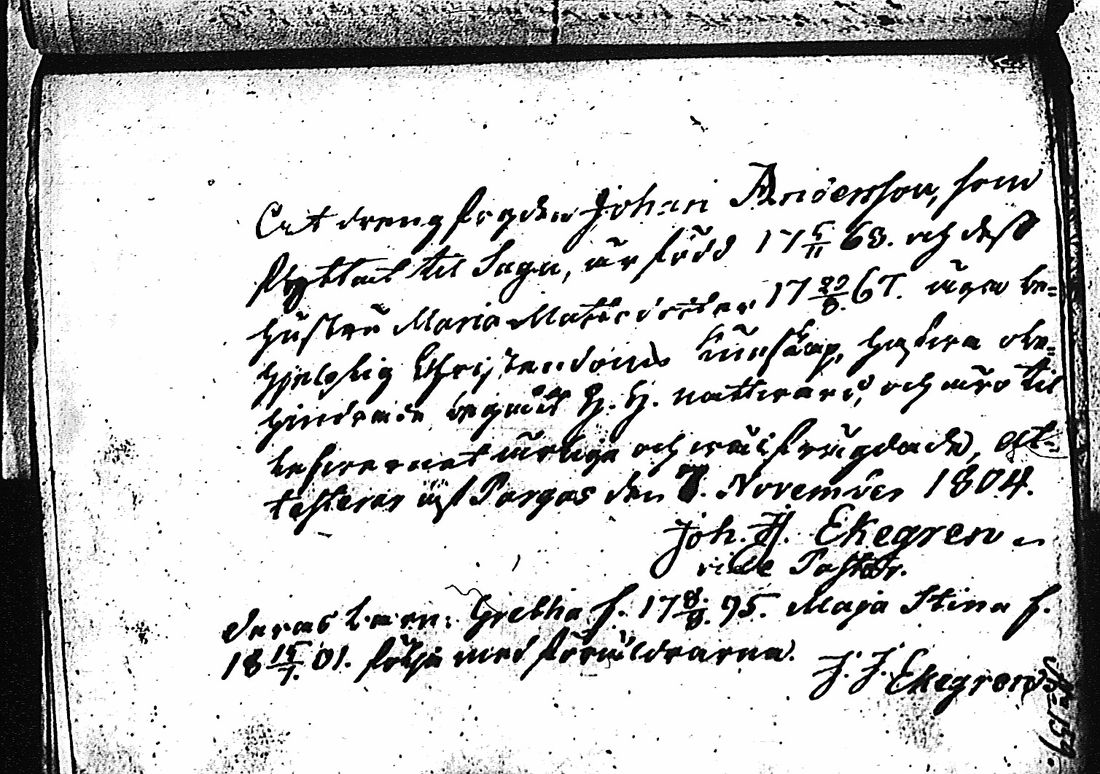 At drengfogden Johan Andersson, som
flyttat til Sagu, är född 17 5/11 63. och dess
hustru Maria Mattsdotter 17 20/8. 67. äga be=
hjelplig Christendoms kunskap, hafva obe=
hindrade begådt H. H. nattvard, och äro til
lefvernet ärliga och väl frägdade, at=
testeras af Pargas den 7. November 1804.
Joh. H. Ekegren
vice Pastor.
Deras barn: Gretha f. 17 8/8. 95. Maja Stina f.
18 15/7. 01. följa med föräldrarna.
J. H. Ekegren
No 159.